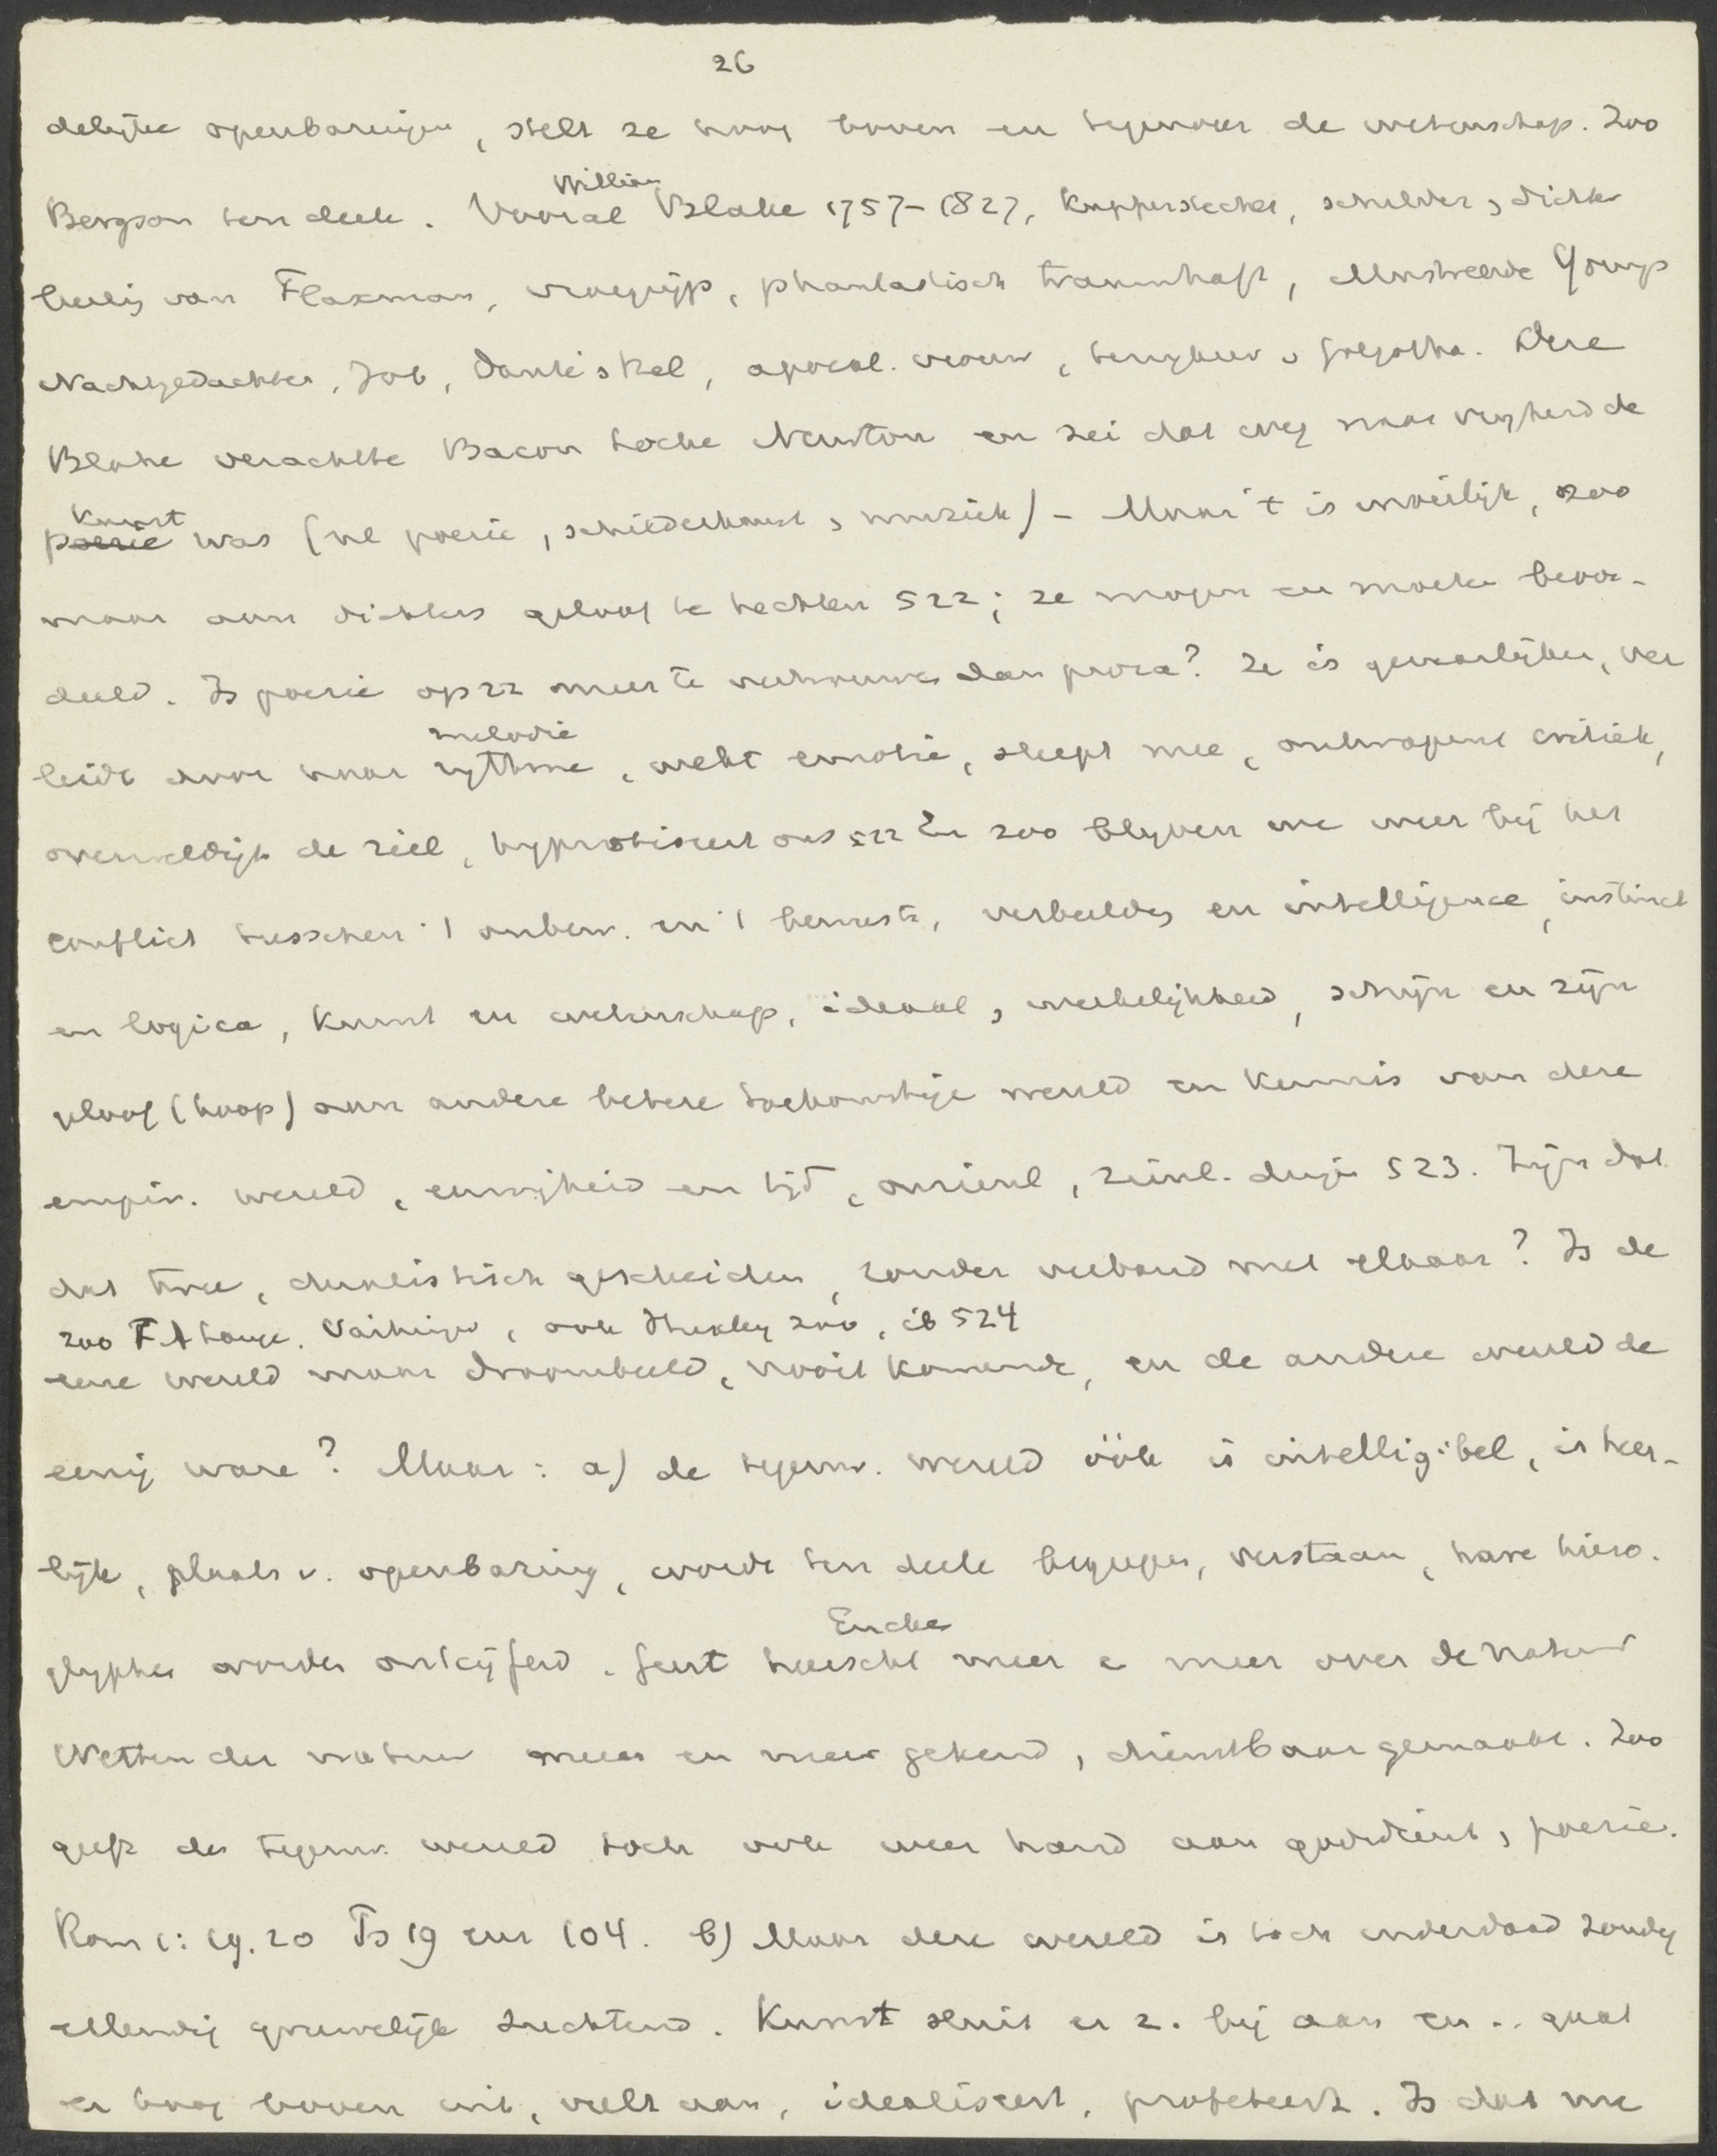 26
delijke openbaringen, stelt ze hoog boven en tegenover de wetenschap. Zoo
William
Bergson ten deele. Vooral Blake 1757-1827, kupferstecher, schilder, dichter
van Flaxman, vroegrijp, phantastisch traumhaft, illustreerde Youngs
Nachtgedachten, Job, Dante's hel, apocal. vrouw, v Golgotha. Deze
Blake verachtte Bacon Locke Newton en zei dat weg naar vrijheid de
kunst
poezie was (nl poezie, schilderkunst, muziek) - Maar 't is moeilijk, zoo
maar aan dichters geloof te hechten 522; ze mogen en moeten beoor-
deeld. Is poezie op zz meer te vertrouwen dan proza? Ze is gevaarlijker, ver
melodie
leidt door haar rythme, wekt emotie, sleept mee, ontwapent critiek,
overweldigt de ziel, hypnotiseert ons 522 En zoo blijven we weer bij het
conflict tusschen 't onbew. en 't bewuste, verbeelding en intelligence, instinct
en logica, kunst en wetenschap, ideaal, werkelijkheid, schijn en zijn
geloof (hoop) aan andere betere toekomstige wereld en kennis van deze
empir. wereld, eeuwigheid en tijd, onzienl, zienl. dingen 523. Zijn dat
dat twee, dualistisch gescheiden, zonder verband met elkaar? Is de
zoo F A Lange, Vaihinger, ook Huxley zoo, ib 524
eene wereld maar droombeeld, nooit komende, en de andere wereld de
eenig ware? Maar: a) de tegenw. wereld óók is intelligibel, is heer-
lijk, plaats v. openbaring, wordt ten deele begrepen, verstaan, hare hiero-
glyphen worden ontcijferd. Geest heerscht meer e meer over de natuur
Eucken
Wetten der natuur meer en meer gekend, dienstbaar gemaakt. Zoo
geeft de tegenw. wereld toch ook weer hand aan godsdienst, poezie.
Rom 1:19.20 Ps 19 en 104. b) Maar deze wereld is toch inderdaad zondig
ellendig gruwelijk zuchtend. Kunst sluit er z. bij aan en .. gaat
er hoog boven uit, vult aan, idealiseert, profeteert. Is dat nu